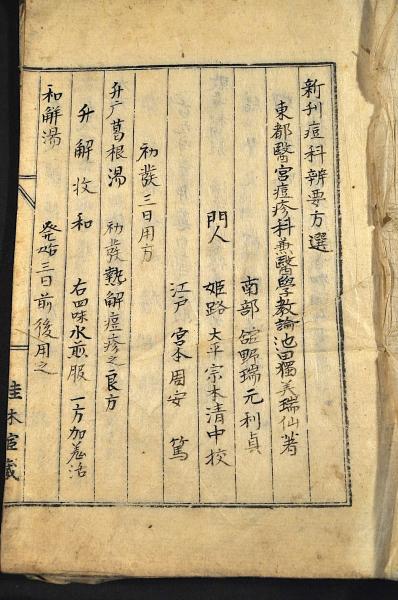 新刋痘科辨要方選
東都醫官痘疹科兼醫學教諭池田獨美瑞仙著
南部 舘野瑞元利貞
門人 姫路 大平宗本清中校
江戸 宮本周安 篤
初發三日用方
升广葛根湯 初發熱解痘疹之良方
升 解 攻 和 右四味水煎服 一方加羗活
和解湯 発熱三日前後用之